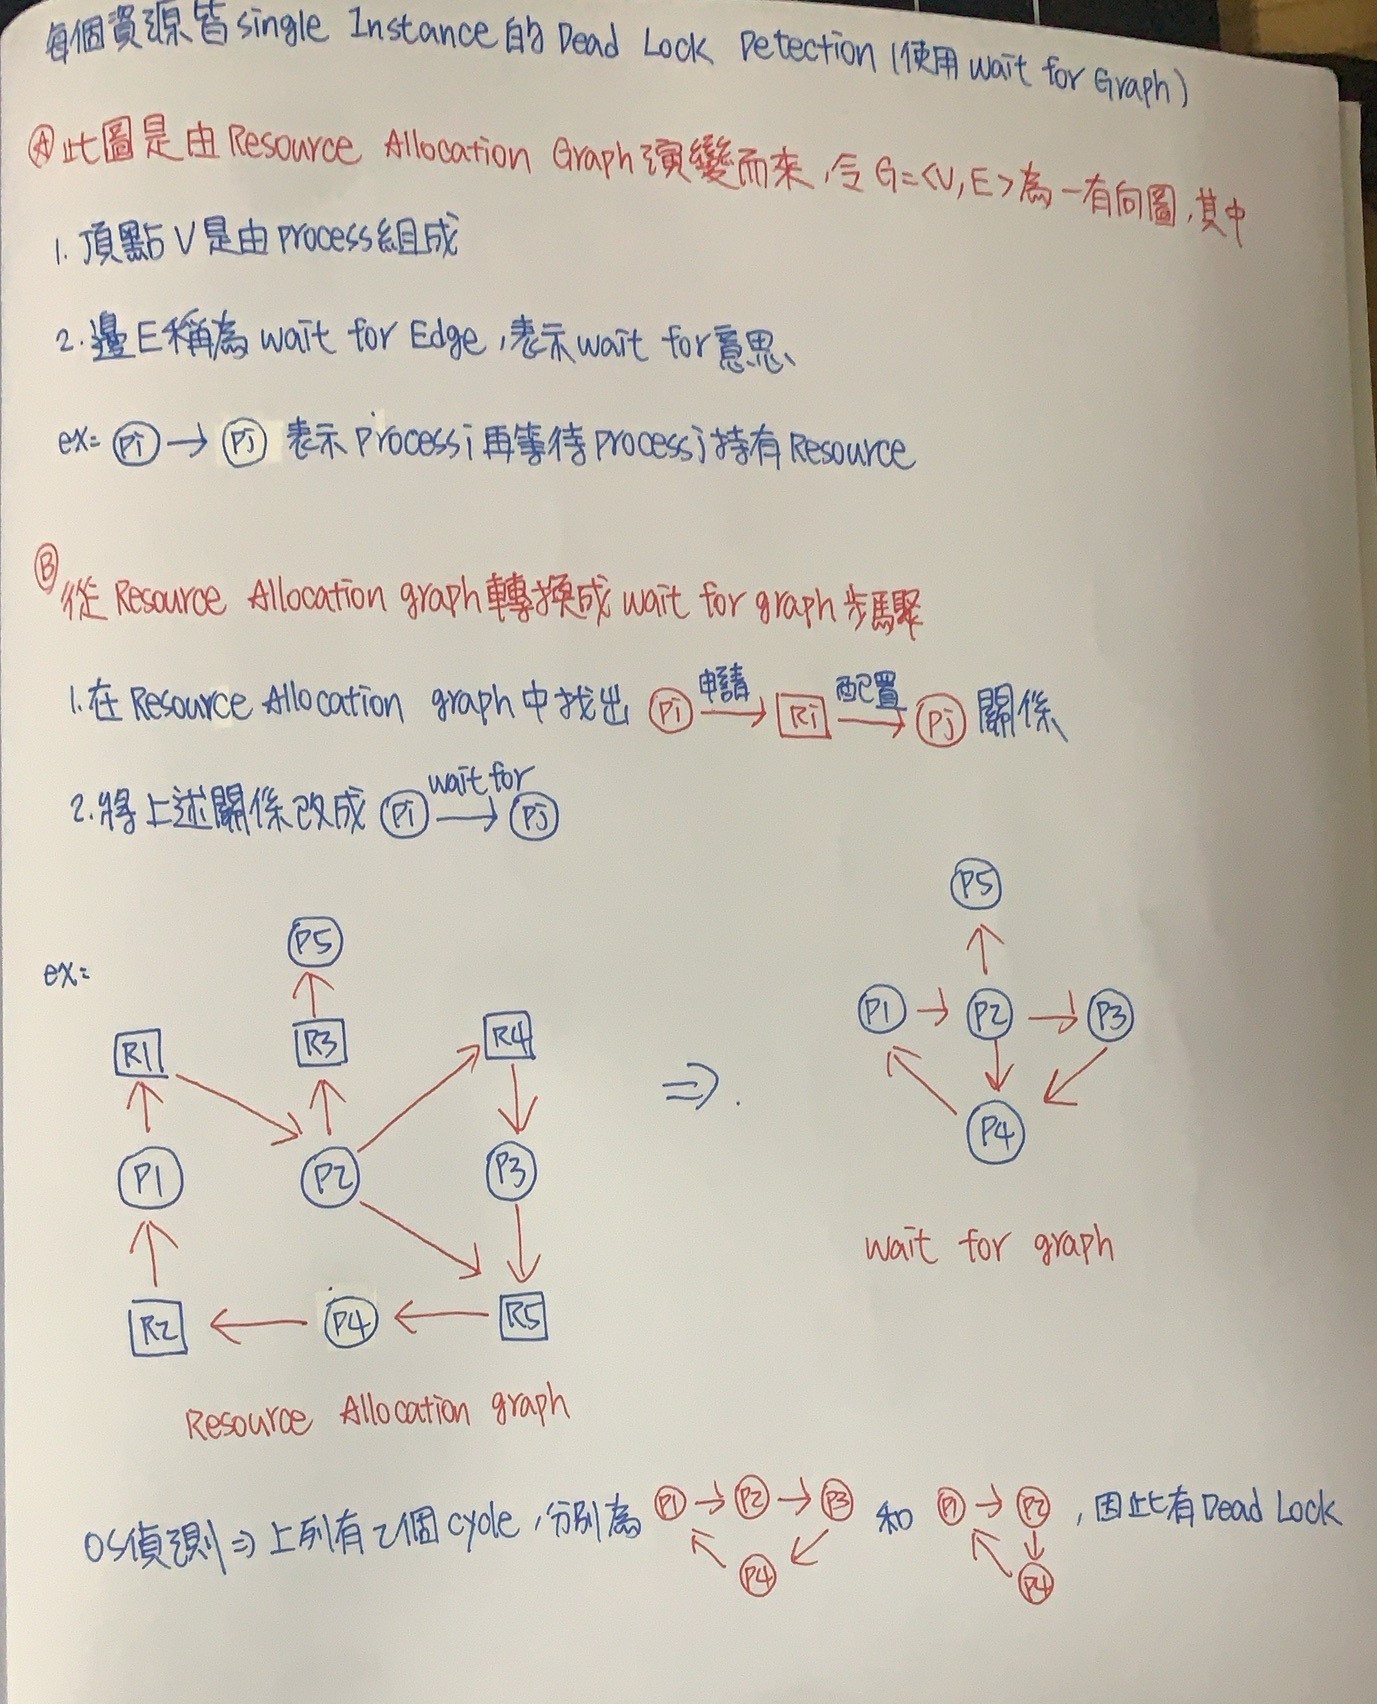 每個資源皆single Instance的Dead Lock Detection(使用wait for Graph)
Ⓐ此圖是由Resource Allocation Graph演變而來,令G=<V,E>為一有向圖,其中
1.頂點V是由process組成
2.邊E稱為wait for Edge,表示wait for意思、
ex= Pi → Pj 表示processi再等待processj持有Resource
Ⓑ從Resource Allocation graph轉換成wait for graph步驟
1.在Resource Allocation graph中找出 Pi 申請→ Ri 配置→ Pj 關係
2.將上述關係改成 Pi wait for→ Pj
ex=
P5
R1 R3 R4
P1 P2 P3
R2 ← P4 ← R5
Resource Allocation graph
⇒.
P5
P1 → P2 → P3
P4
wait for graph
OS偵測⇒上列有2個cycle,分別為 P1 → P2 → P3 和 P1 → P2 ,因此有Dead Lock
P4 P4